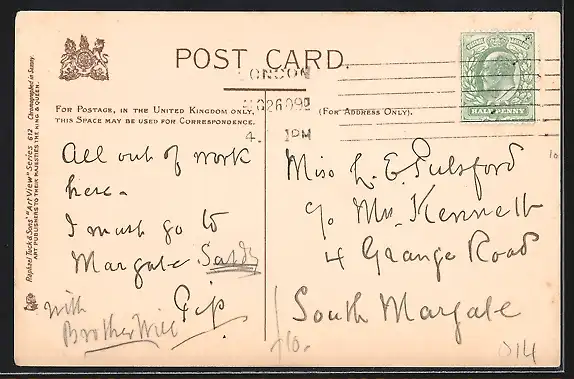 POST CARD.
LONDON
4.
1PM
FOR POSTAGE, IN THE UNITED KINGDOM ONLY,
THIS SPACE MAY BE USED FOR CORRESPONDENCE.
(FOR ADDRESS ONLY).
HALFPENNY
Raphael Tuck & Sons' "Art View" Series 612
ART PUBLISHERS TO THEIR MAJESTIES THE KING & QUEEN.
Chromographed in Saxony.
All out of work
here -
I must go to
Margate Satdy
Gip
with
Brother Will
Miss L. E. Pulsford
c/o Mrs. Kennett
4 Grange Road
South Margate
10
014